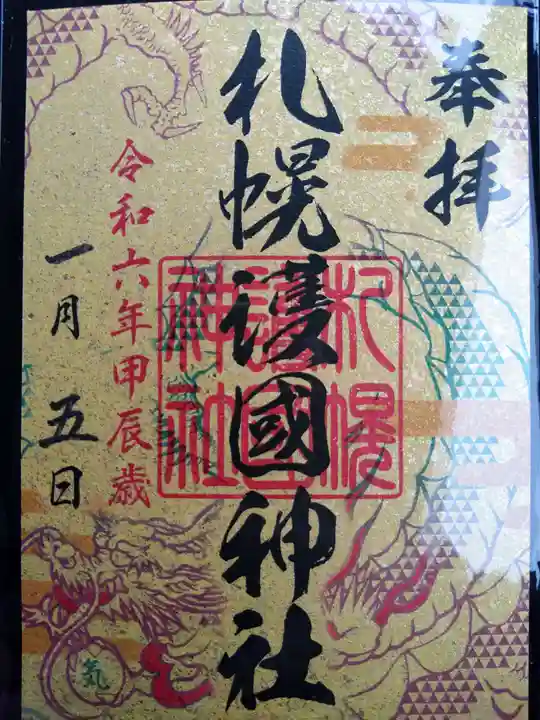 奉拝
札幌護國神社
札幌
護國
神社
令和六年甲辰歳
一月五日
気